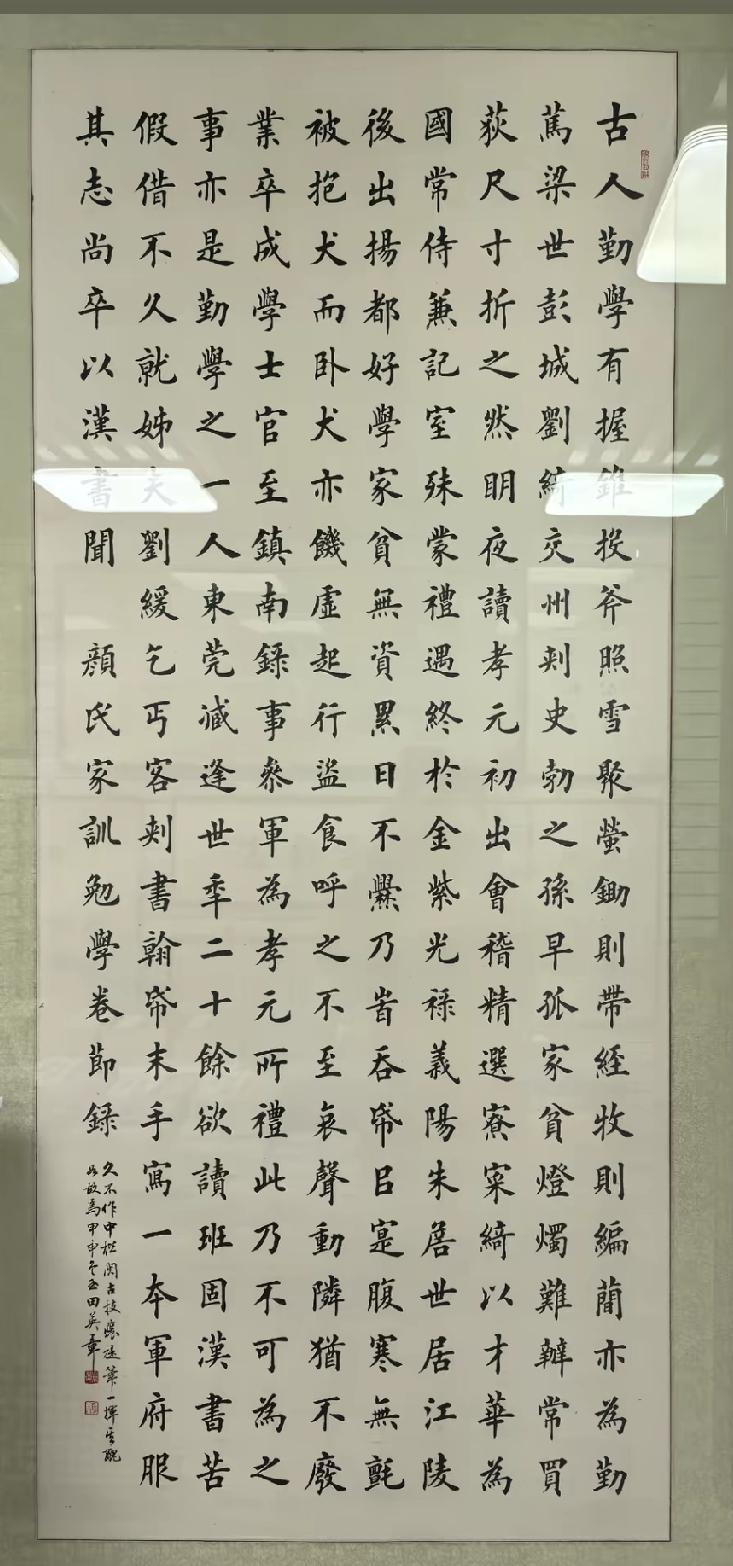 古人勤學有握錐投斧照雪聚螢鋤則帶經牧則編蕳亦為勤
篤梁世彭城劉綺交州刾史勃之孫早孤家貧燈燭難辦常買
荻尺寸折之然明夜讀孝元初出會稽精選寮寀綺以才華為
國常侍兼記室殊蒙禮遇終於金紫光祿義陽朱詹世居江陵
後出揚都好學家貧無資累日不爨乃旹吞帋㠯寔腹寒無氈
被抱犬而卧犬亦饑虛起行盜食呼之不至哀聲動隣猶不廢
業卒成學士官至鎮南錄事叅軍為孝元所禮此乃不可為之
事亦是勤學之一人東莞臧逢世秊二十餘欲讀班固漢書苦
假借不久就姊夫劉緩乞丐客刾書翰帋末手寫一本軍府服
其志尚卒以漢書聞 顏氏家訓勉學卷節錄
久不作中楷閱古
甲申 田英章